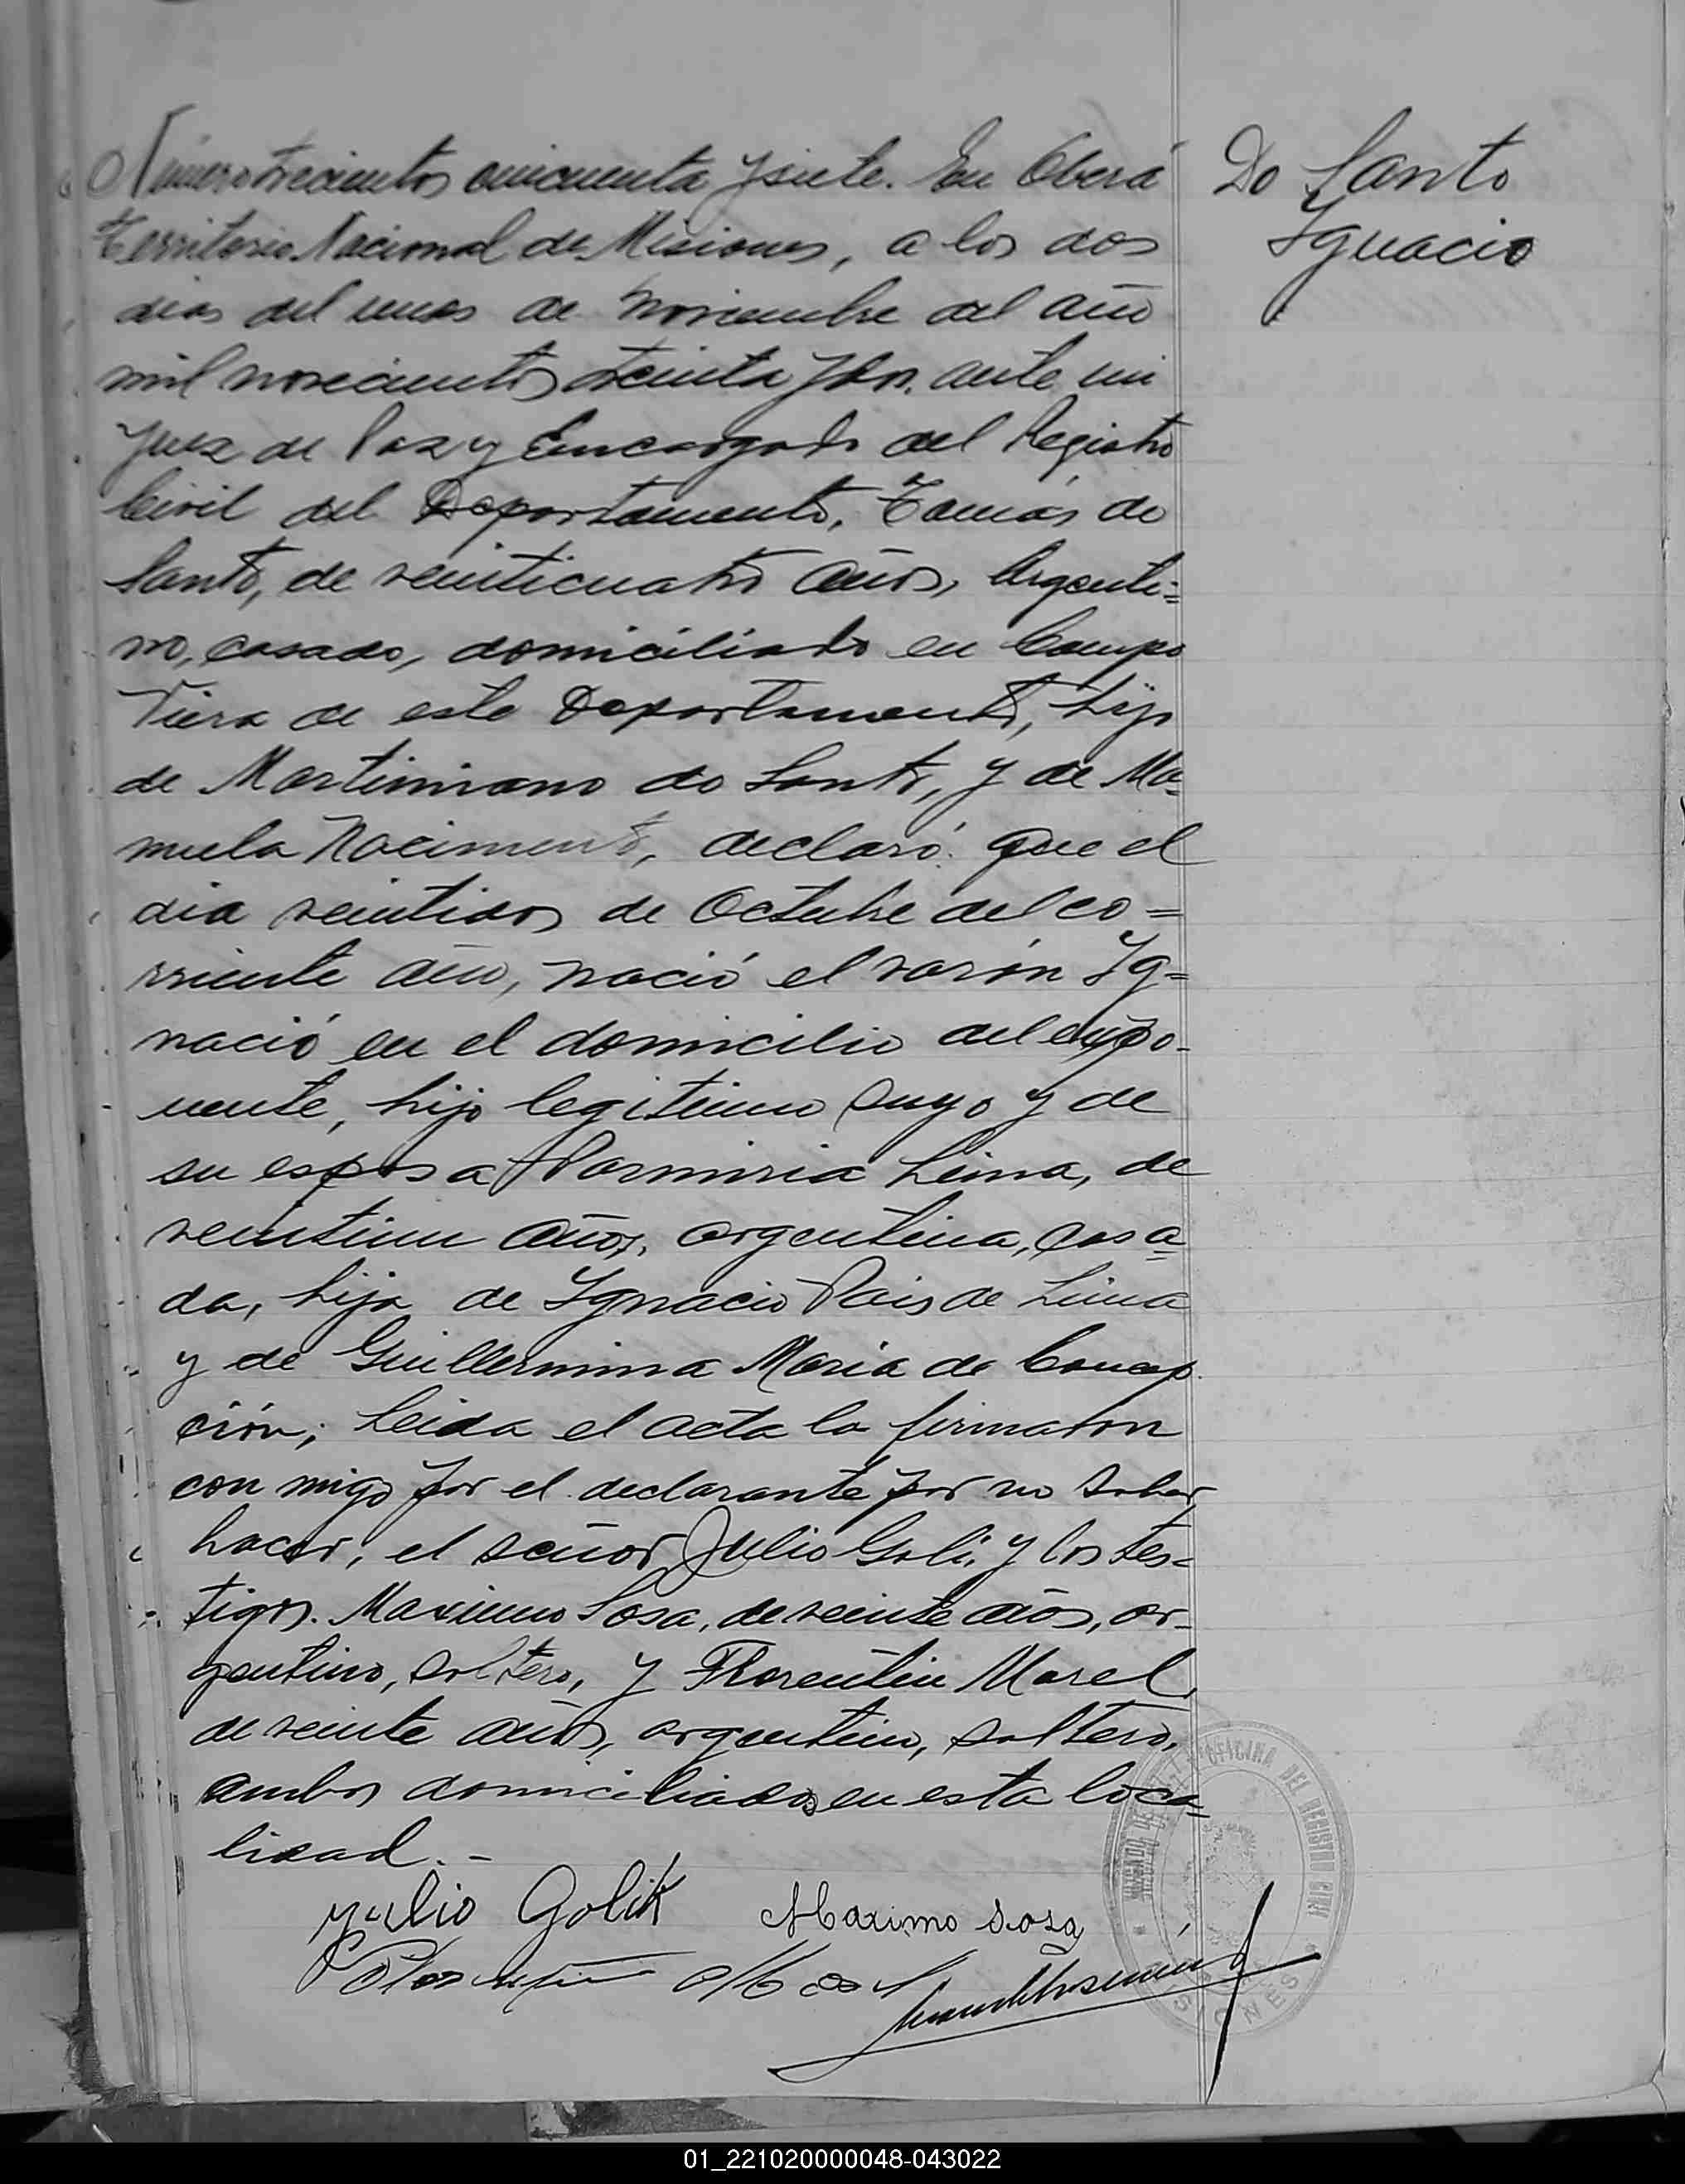 Número trecientos cincuenta y siete. En Oberá
Territorio Nacional de Misiones, a los dos
dias del mes de Noviembre del año
mil novecientos treinta y dos. ante mi
Juez de Paz y Encargado del Registro
Civil del Departamento, Tomás do
Santo, de veinticuatro años, Argenti=
no, casado, domiciliado en Campo
Viera de este Departamento, hijo
de Martimiano do Santo, y de Ma=
nuela Nacimento, declaró: que el
dia veintidos de Octubre del co=
rriente año, nació el varón Ig=
nació en el domicilio del expo-
nente, hijo legitimo suyo y de
su esposa Parmiria Lima, de
veintiun años, argentina, casa=
da, hija de Ygnacio Pais de Lima
y de Guillermina Maria da Concep
ción; Leida el acta la firmaron
con migo por el declarante por no saber
hacer, el señor Julio Goli, y los tes=
tigos. Maximo Sosa, de veinte años, ar-
gentino, soltero, y Florentin Morel,
de veinte años, argentino, soltero,
ambos domiciliados en esta loca=
lidad.-
Julio Golik Maximo Sosa
Florentin
Do Santo
Ygnacio
OFICINA DEL REGISTRO CIVIL
JUZGADO DE
01_221020000048-043022